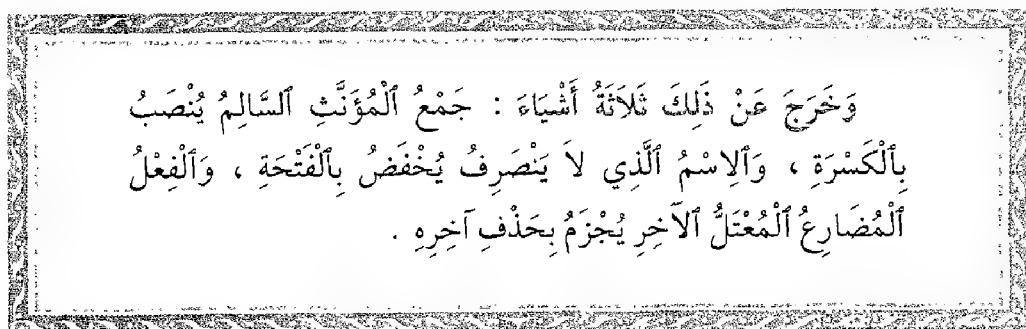 وَخَرَجَ عَنْ ذَلِكَ ثَلَاثَةُ أَشْيَاءَ : جَمْعُ ٱلْمُؤَنَّثِ ٱلسَّالِمُ يُنْصَبُ
بِٱلْكَسْرَةِ ، وَٱلِاسْمُ ٱلَّذِي لَا يَنْصَرِفُ يُخْفَضُ بِٱلْفَتْحَةِ ، وَٱلْفِعْلُ
ٱلْمُضَارِعُ ٱلْمُعْتَلُّ ٱلْآخِرِ يُجْزَمُ بِحَذْفِ آخِرِهِ .